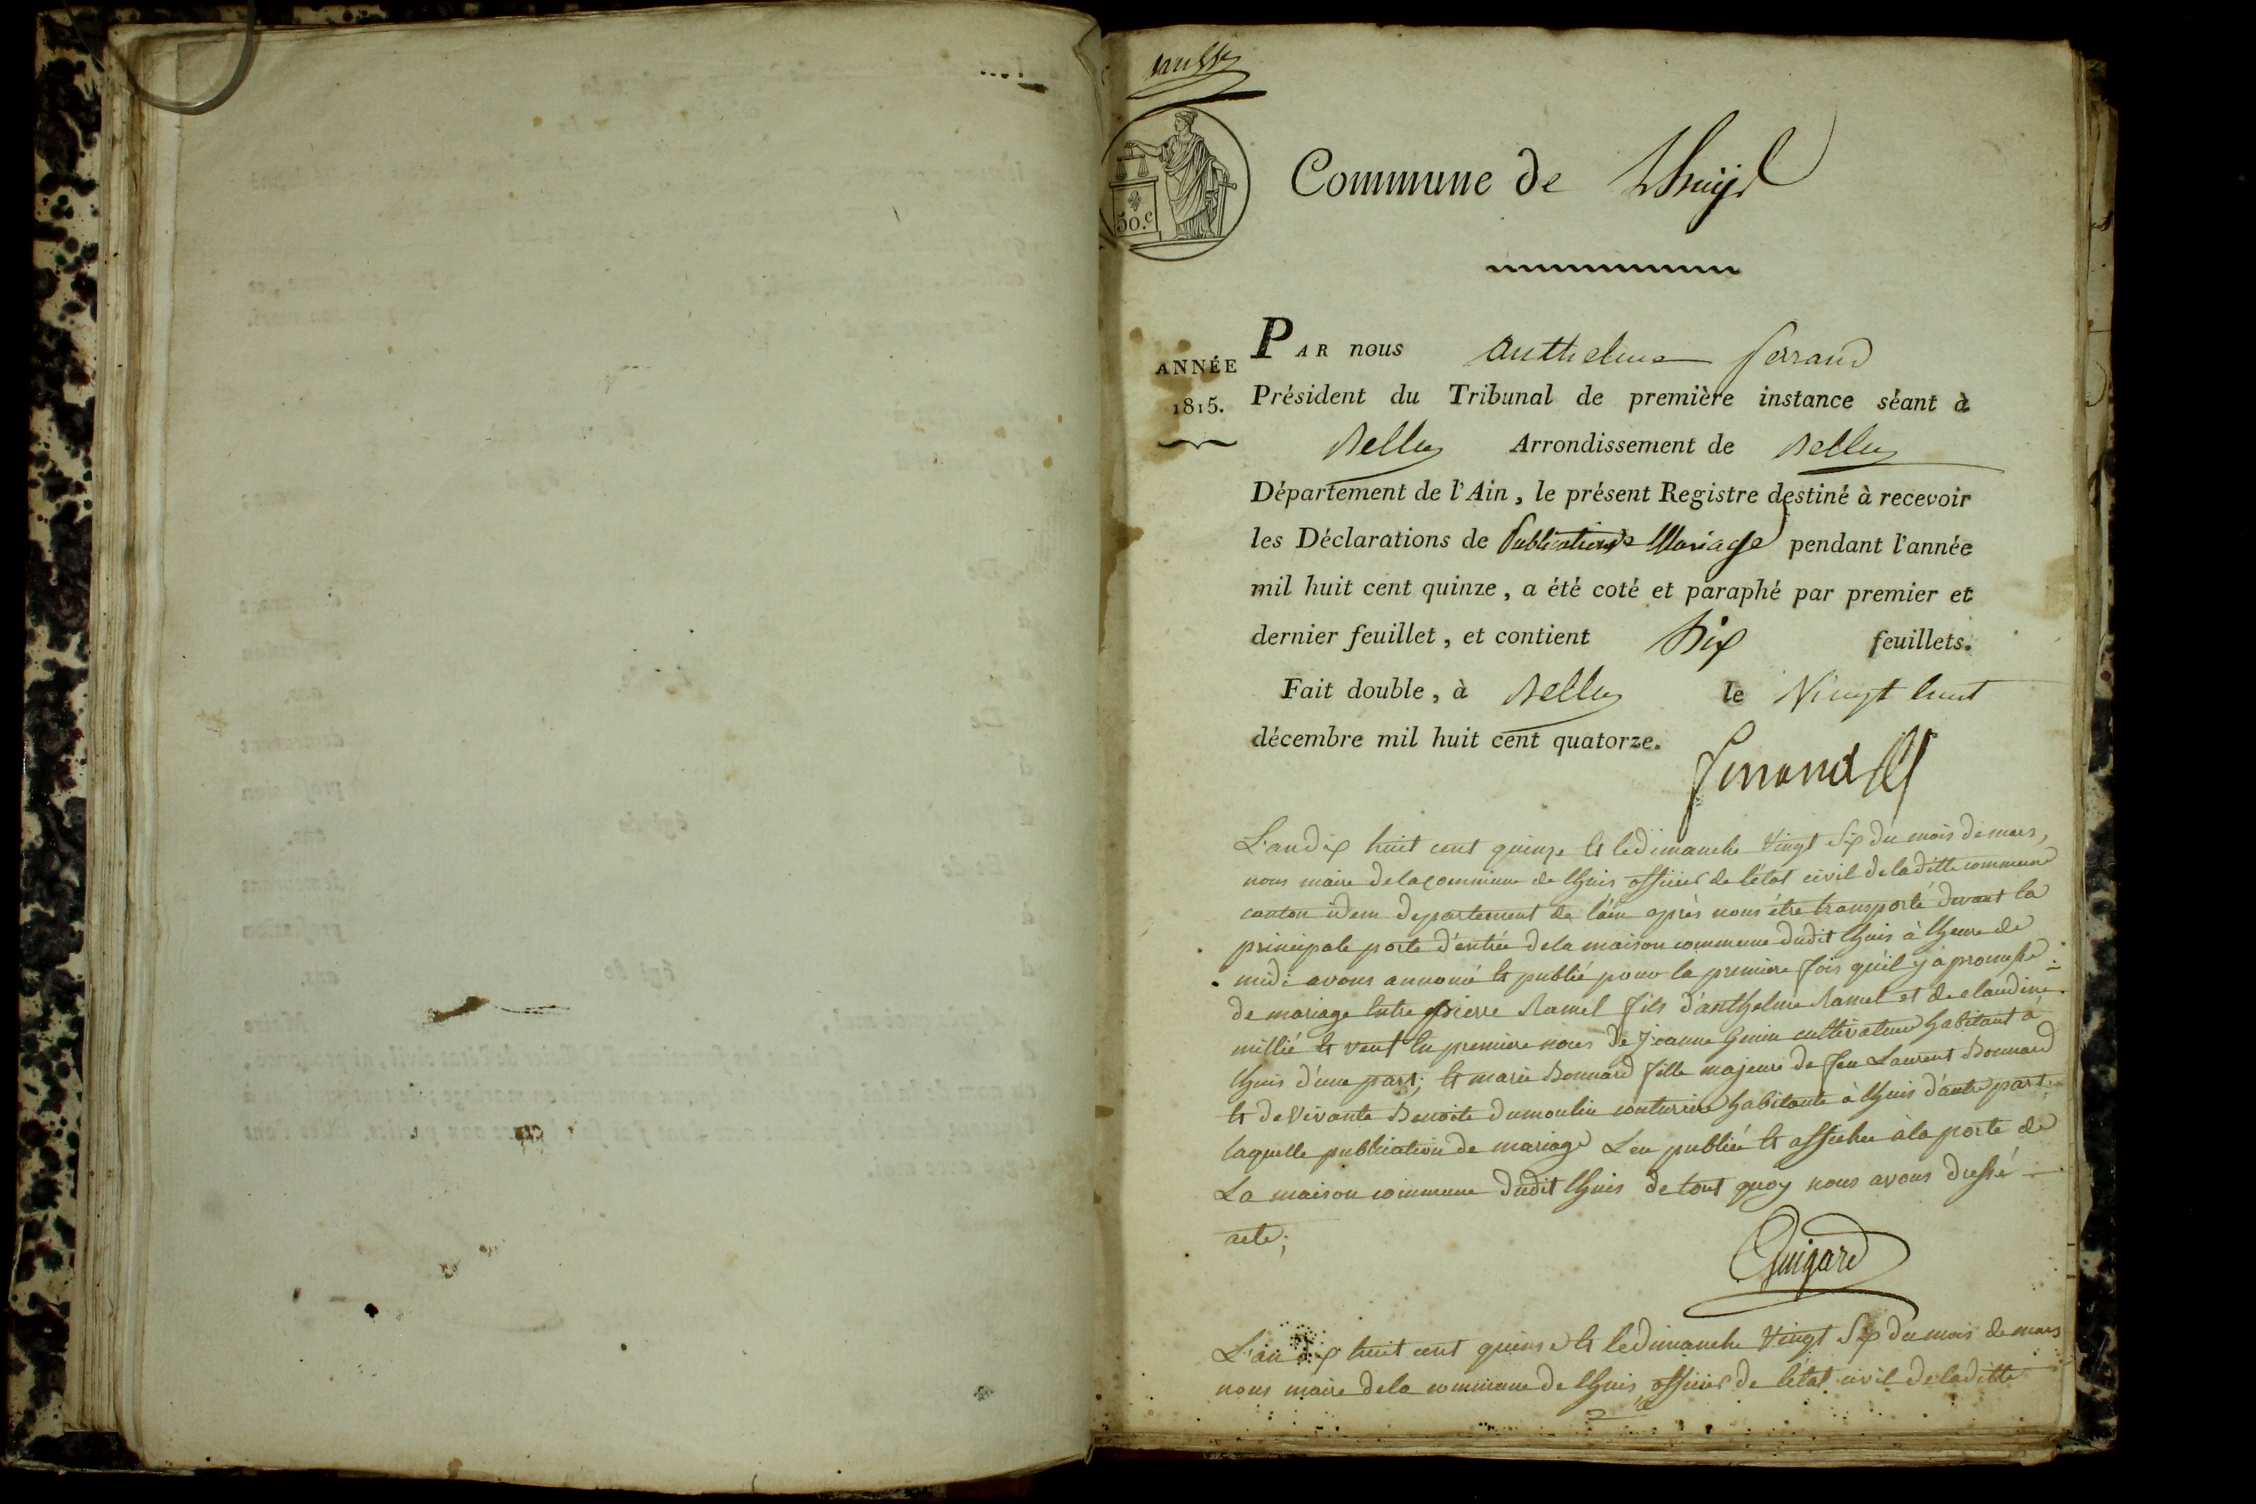 50.c
Commune de Lhuys
ANNÉE
1815.
PAR nous Anthelme ferrand
Président du Tribunal de première instance séant à
Belley Arrondissement de Belley
Département de l'Ain, le présent Registre destiné à recevoir
les Déclarations de Publications de Mariage pendant l'année
mil huit cent quinze, a été coté et paraphé par premier et
dernier feuillet, et contient Six feuillets.
Fait double, à Belley le Vingt huit
décembre mil huit cent quatorze.
ferrand
L'an dix huit cent quinze et le dimanche vingt Six du mois de mars,
nous maire de la commune de lhuis officier de l'état civil de laditte commune
canton idem departement de l'ain après nous être transporté devant la
principale porte d'entrée de la maison commune dudit lhuis à lheure de
midi avons annoncé et publié pour la premiere fois qu'il y a promesse
de mariage entre pierre Ramel fils d'anthelme Ramel et de claudine
millié et veuf en premiere noces de Jeanne Guin cultivateur habitant à
lhuis d'une part; et marie Bonnard fille majeure de feu Laurent Bonnard
et de vivante Benoite dumoulin couturiere habitante à lhuis d'autre part;
laquelle publication de mariage Lue publiée et affichée à la porte de
La maison commune dudit lhuis de tout quoy nous avons dressé
acte;
Guigard
L'an dix huit cent quinse et le dimanche vingt Six du mois de mars
nous maire de la commune de lhuis officier de l'état civil de laditte